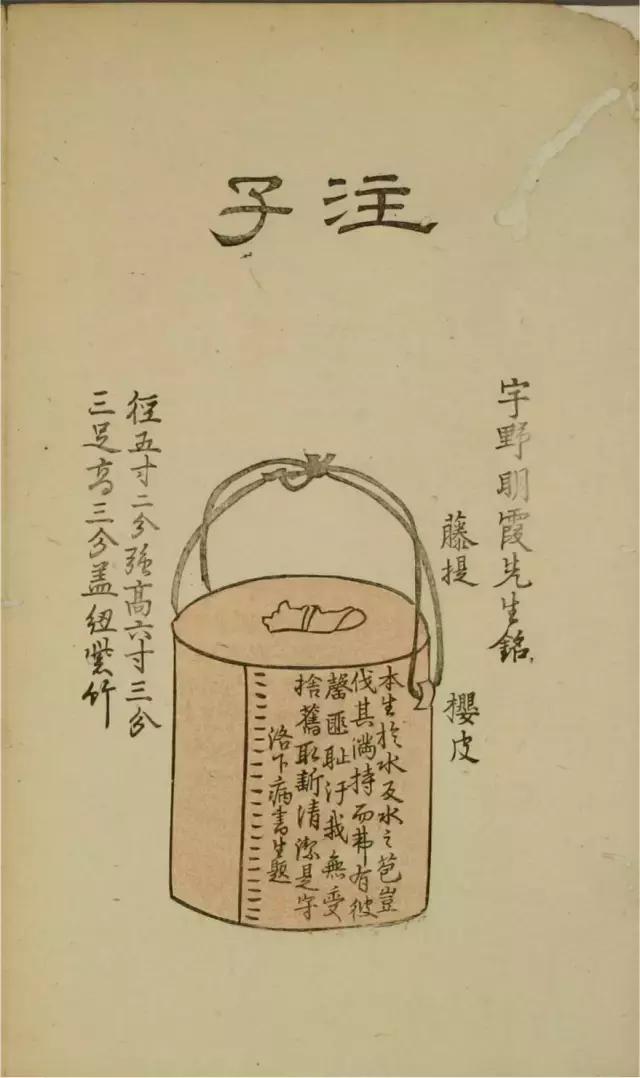 注子
宇野明霞先生銘
藤提
櫻皮
本生於水及水之苞豈
伐其滿持而弗有彼
罄匪恥汙我無受
捨舊取新清潔是守
洛下病書生題
徑五寸二分強高六寸三分
三足高三分盖紐紫竹